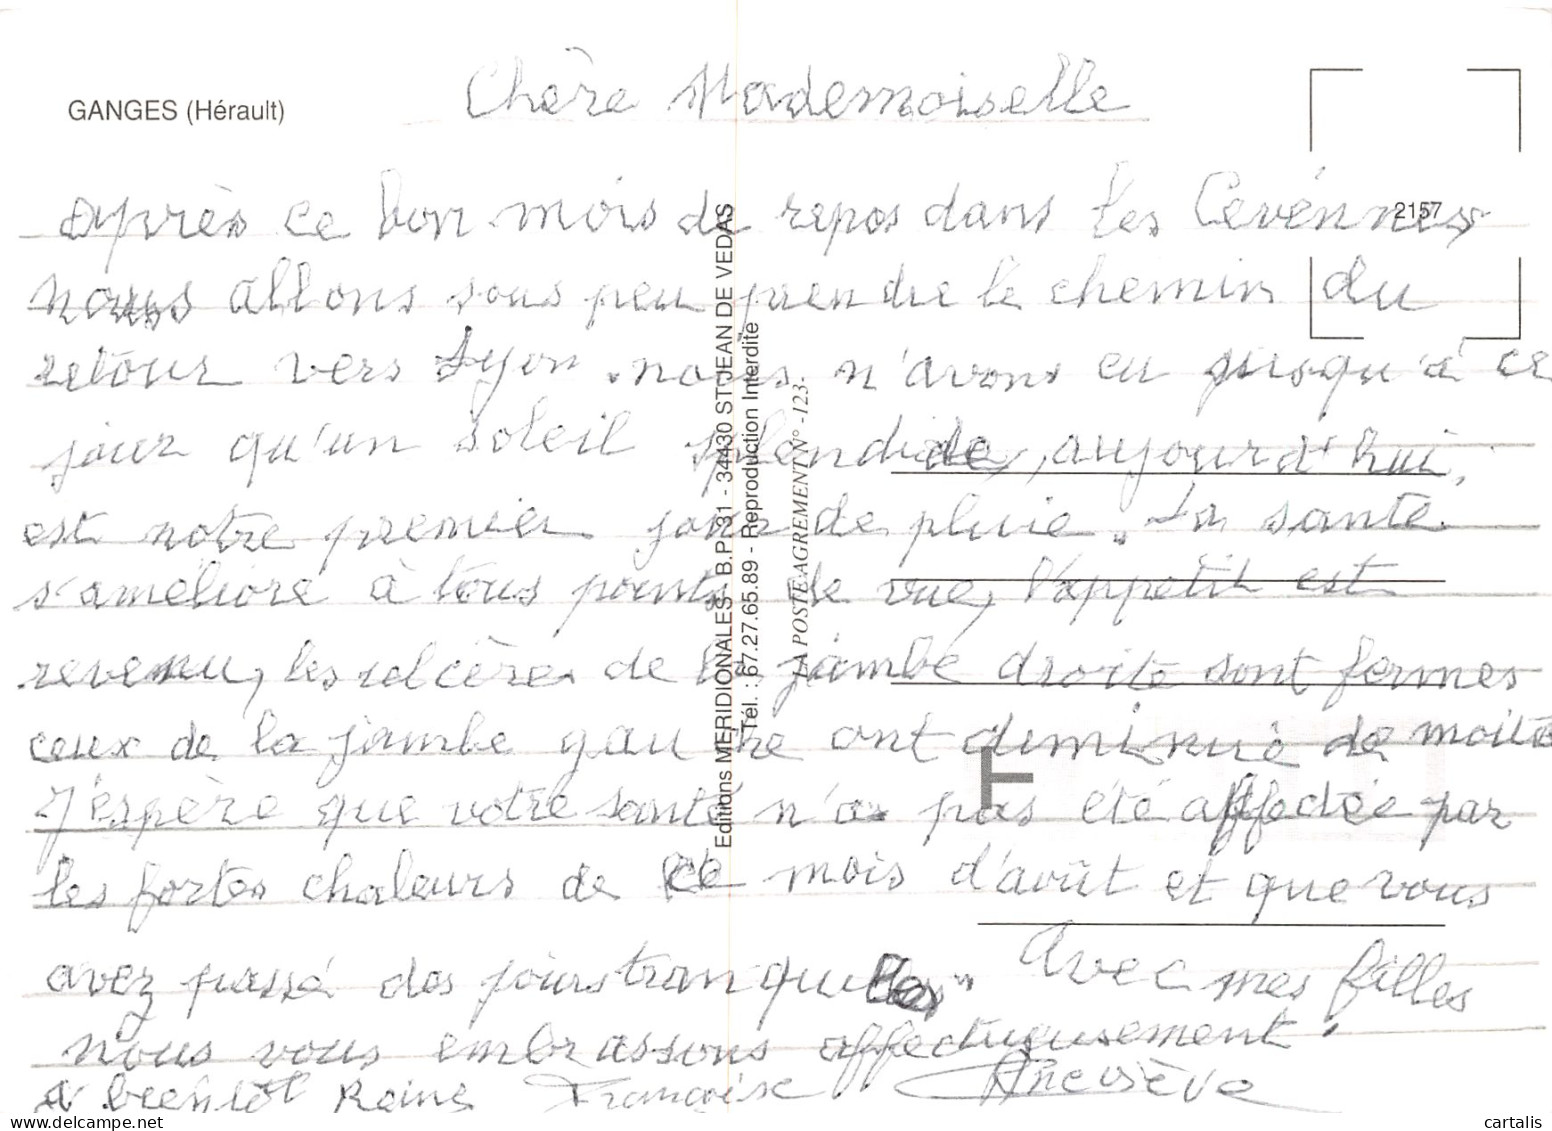 GANGES (Hérault)
Chère Mademoiselle
Après ce bon mois de repos dans les Cevénnes
nous allons sous peu prendre le chemin du
retour vers Lyon. nous n'avons eu jusqu'à ce
jour qu'un soleil splendide, aujourd'hui,
est notre premier jour de pluie. La santé
s'améliore à tous points de vue, l'appetit est
revenu, les ulcères de la jambe droite sont fermes
ceux de la jambe gauche ont diminué de moitié
J'espère que votre santé n'a pas été affectée par
les fortes chaleurs de ce mois d'août et que vous
avez passé des jours tranquilles. Avec mes filles
nous vous embrassons affectueusement.
A bientôt Reine Françoise Geneviève
2157
Editions MERIDIONALES - B.P. 31 - 34430 ST JEAN DE VEDAS
Tél. : 67.27.65.89 - Reproduction Interdite
LA POSTE AGREMENT N° -123-
cartalis
delcampe.net